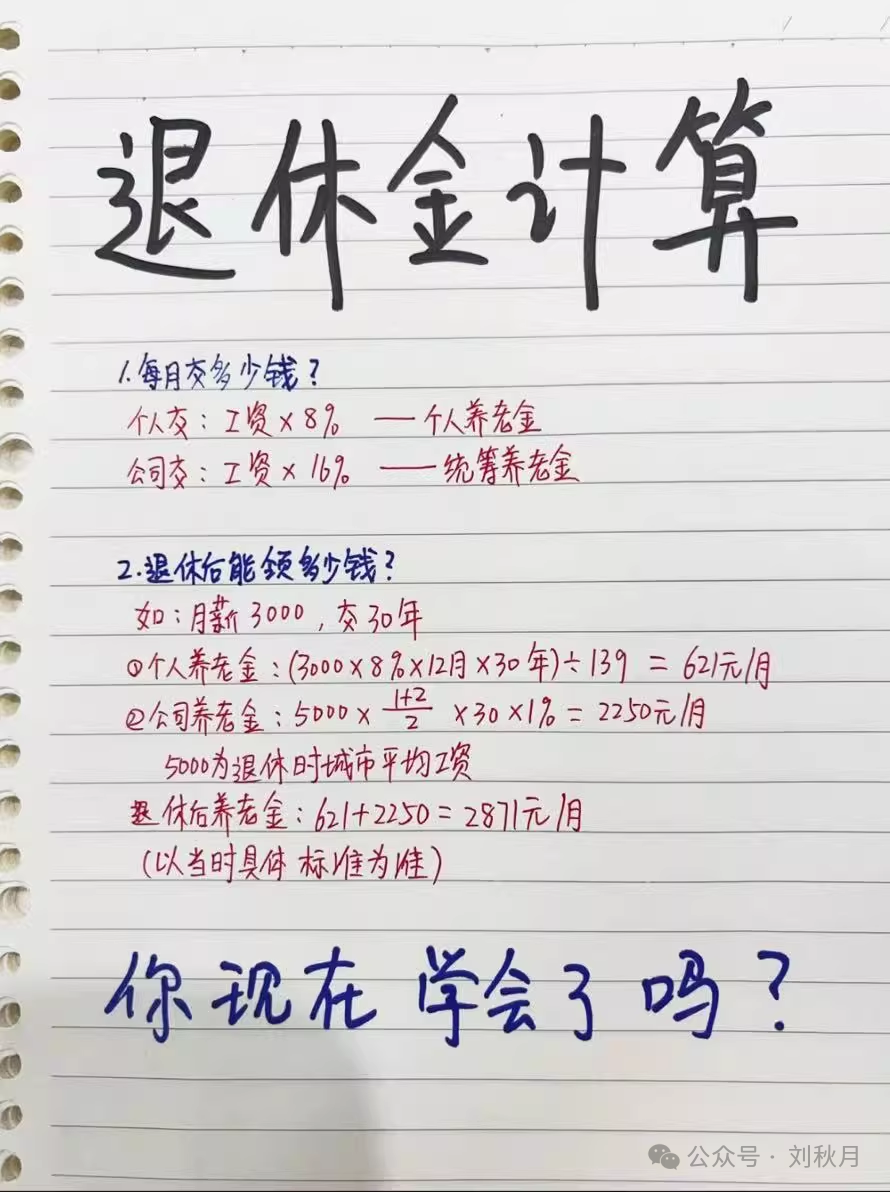 退休金计算
1.每月交多少钱?
个人交:工资×8% —个人养老金
公司交:工资×16% —统筹养老金
2.退休后能领多少钱?
如:月薪3000,交30年
①个人养老金:(3000×8%×12月×30年)÷139 = 621元/月
②公司养老金:5000×(1+2)/2×30×1% = 2250元/月
5000为退休时城市平均工资
退休后养老金:621+2250=2871元/月
(以当时具体标准为准)
你现在学会了吗?
公众号·刘秋月